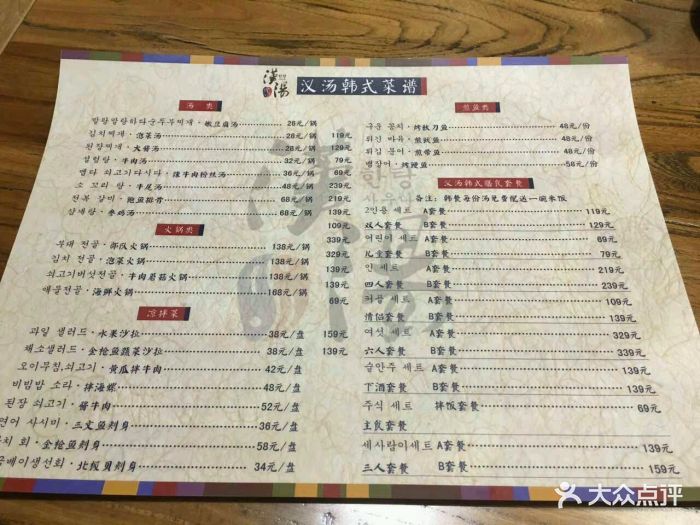 漢湯 汉汤韩式菜谱
汤 类
랄랄랄랄하다순두부찌개·嫩豆腐汤 28元/锅
김치찌개·泡菜汤 28元/锅 119元
된장찌개·大酱汤 28元/锅 139元
설렁탕·牛肉汤 32元/锅 79元
맵다 쇠고기다시다·辣牛肉粉丝汤 36元/锅 69元
소 꼬리 탕·牛尾汤 48元/锅 239元
전복 갈비·鲍鱼排骨 68元/锅 219元
삼계탕·参鸡汤 68元/锅 139元
火锅类
부대 전골·部队火锅 138元/锅
김치 전골·泡菜火锅 138元/锅
쇠고기버섯전골·牛肉蘑菇火锅 138元/锅
해물전골·海鲜火锅 168元/锅
凉拌菜
과일 샐러드·水果沙拉 38元/盘 159元
채소샐러드·金枪鱼蔬菜沙拉 38元/盘 139元
오이무침,쇠고기·黄瓜拌牛肉 42元/盘
비빔밥 소라·拌海螺 48元/盘
된장 쇠고기·酱牛肉 52元/盘
연어 사시미·三文鱼刺身 36元/盘
치 회·金枪鱼刺身 58元/盘
베이생선회·北极贝刺身 34元/盘
煎鱼类
구운 꽁치·烤秋刀鱼 48元/份
48元/份
튀김 문어·煎带鱼 48元/份
뱀장어·烤鳗鱼 58元/份
汉汤韩式膳食套餐
备注：韩餐每份汤免费配送一碗米饭
2인용 세트 A套餐 119元
双人套餐 B套餐 129元
어린이 세트 A套餐 69元
儿童套餐 B套餐 79元
인 세트 A套餐 219元
四人套餐 B套餐 239元
커플 세트 A套餐 109元
情侣套餐 B套餐 139元
여섯 세트 A套餐 329元
六人套餐 B套餐 339元
술안주 세트 A套餐 139元
下酒套餐 B套餐 139元
주식 세트 拌饭套餐 69元
主食套餐
세사람이세트 A套餐 139元
三人套餐 B套餐 159元
大众点评